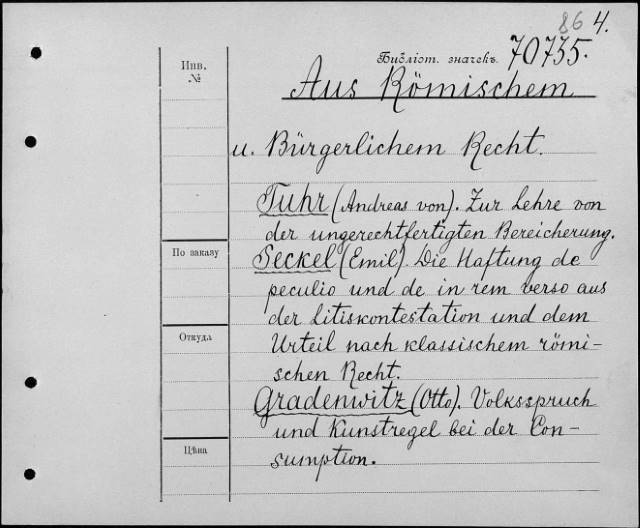 86 4.
Библіот. значекъ. 70735.
Инв.
№
Aus Römischem
u. Bürgerlichem Recht.
Tuhr (Andreas von). Zur Lehre von
der ungerechtfertigten Bereicherung.
По заказу
Seckel (Emil). Die Haftung de
peculio und de in rem verso aus
der Litiskontestation und dem
Откуда
Urteil nach klassischem römi-
schen Recht.
Gradenwitz (Otto). Volksspruch
und Kunstregel bei der Con-
Цѣна
sumption.